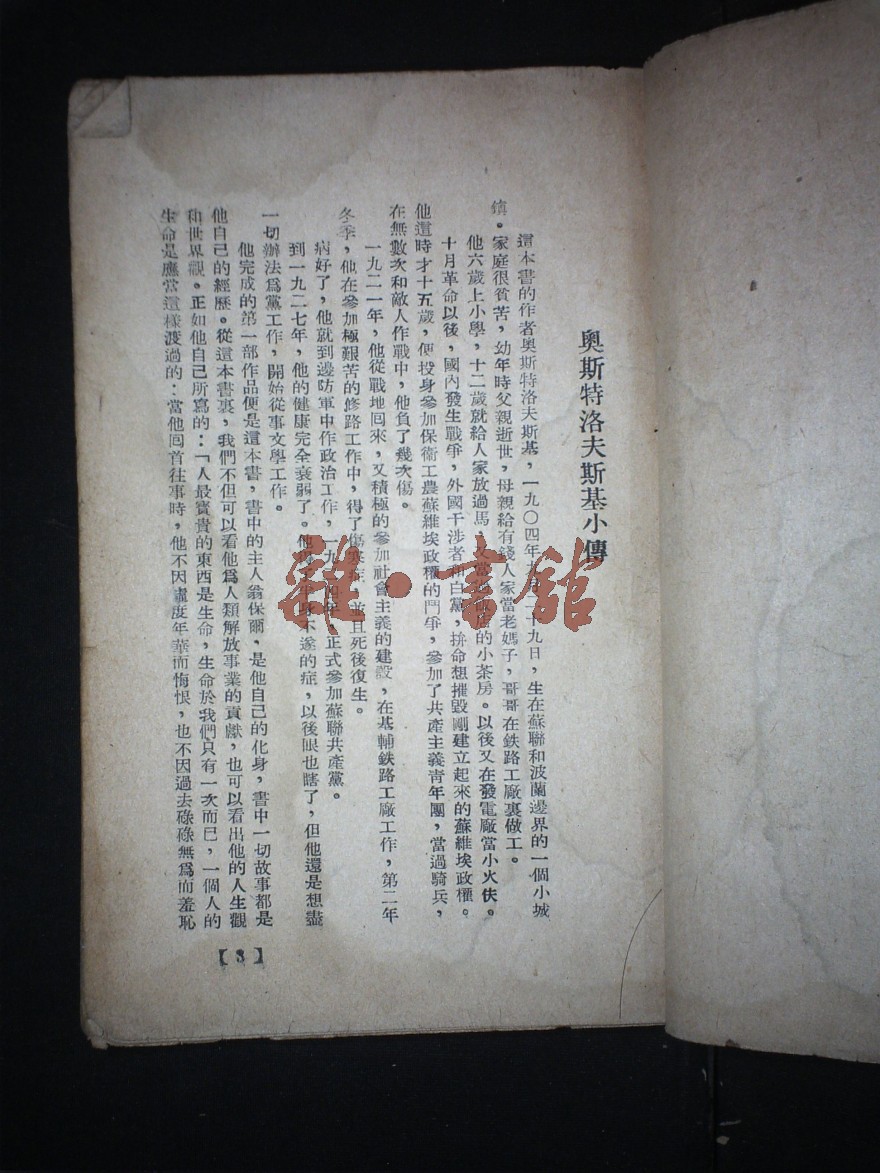 奧斯特洛夫斯基小傳
這本書的作者奧斯特洛夫斯基，一九〇四年九月二十九日，生在蘇聯和波蘭邊界的一個小城
鎮。家庭很貧苦，幼年時父親逝世，母親給有錢人家當老媽子，哥哥在鉄路工廠裏做工。
他六歲上小學，十二歲就給人家放過馬，又當過飯店的小茶房。以後又在發電廠當小火伕。
十月革命以後，國內發生戰爭，外國干涉者和白黨，拚命想摧毀剛建立起來的蘇維埃政權。
他這時才十五歲，便投身參加保衞工農蘇維埃政權的鬥爭，參加了共產主義青年團，當過騎兵，
在無數次和敵人作戰中，他負了幾次傷。
一九二一年，他從戰地囘來，又積極的參加社會主義的建設，在基輔鉄路工廠工作，第二年
冬季，他在參加極艱苦的修路工作中，得了傷寒症，並且死後復生。
病好了，他就到邊防軍中作政治工作，一九 四年，正式參加蘇聯共產黨。
到一九二七年，他的健康完全衰弱了。他得了半身不遂的症，以後眼也瞎了，但他還是想盡
一切辦法爲黨工作，開始從事文學工作。
他完成的第一部作品便是這本書，書中的主人翁保爾，是他自己的化身，書中一切故事都是
他自己的經歷。從這本書裏，我們不但可以看他爲人類解放事業的貢獻，也可以看出他的人生觀
和世界觀。正如他自己所寫的：「人最寳貴的東西是生命，生命於我們只有一次而已，一個人的
生命是應當這樣渡過的：當他囘首往事時，他不因虛度年華而悔恨，也不因過去碌碌無爲而羞恥
【3】
雜·書館